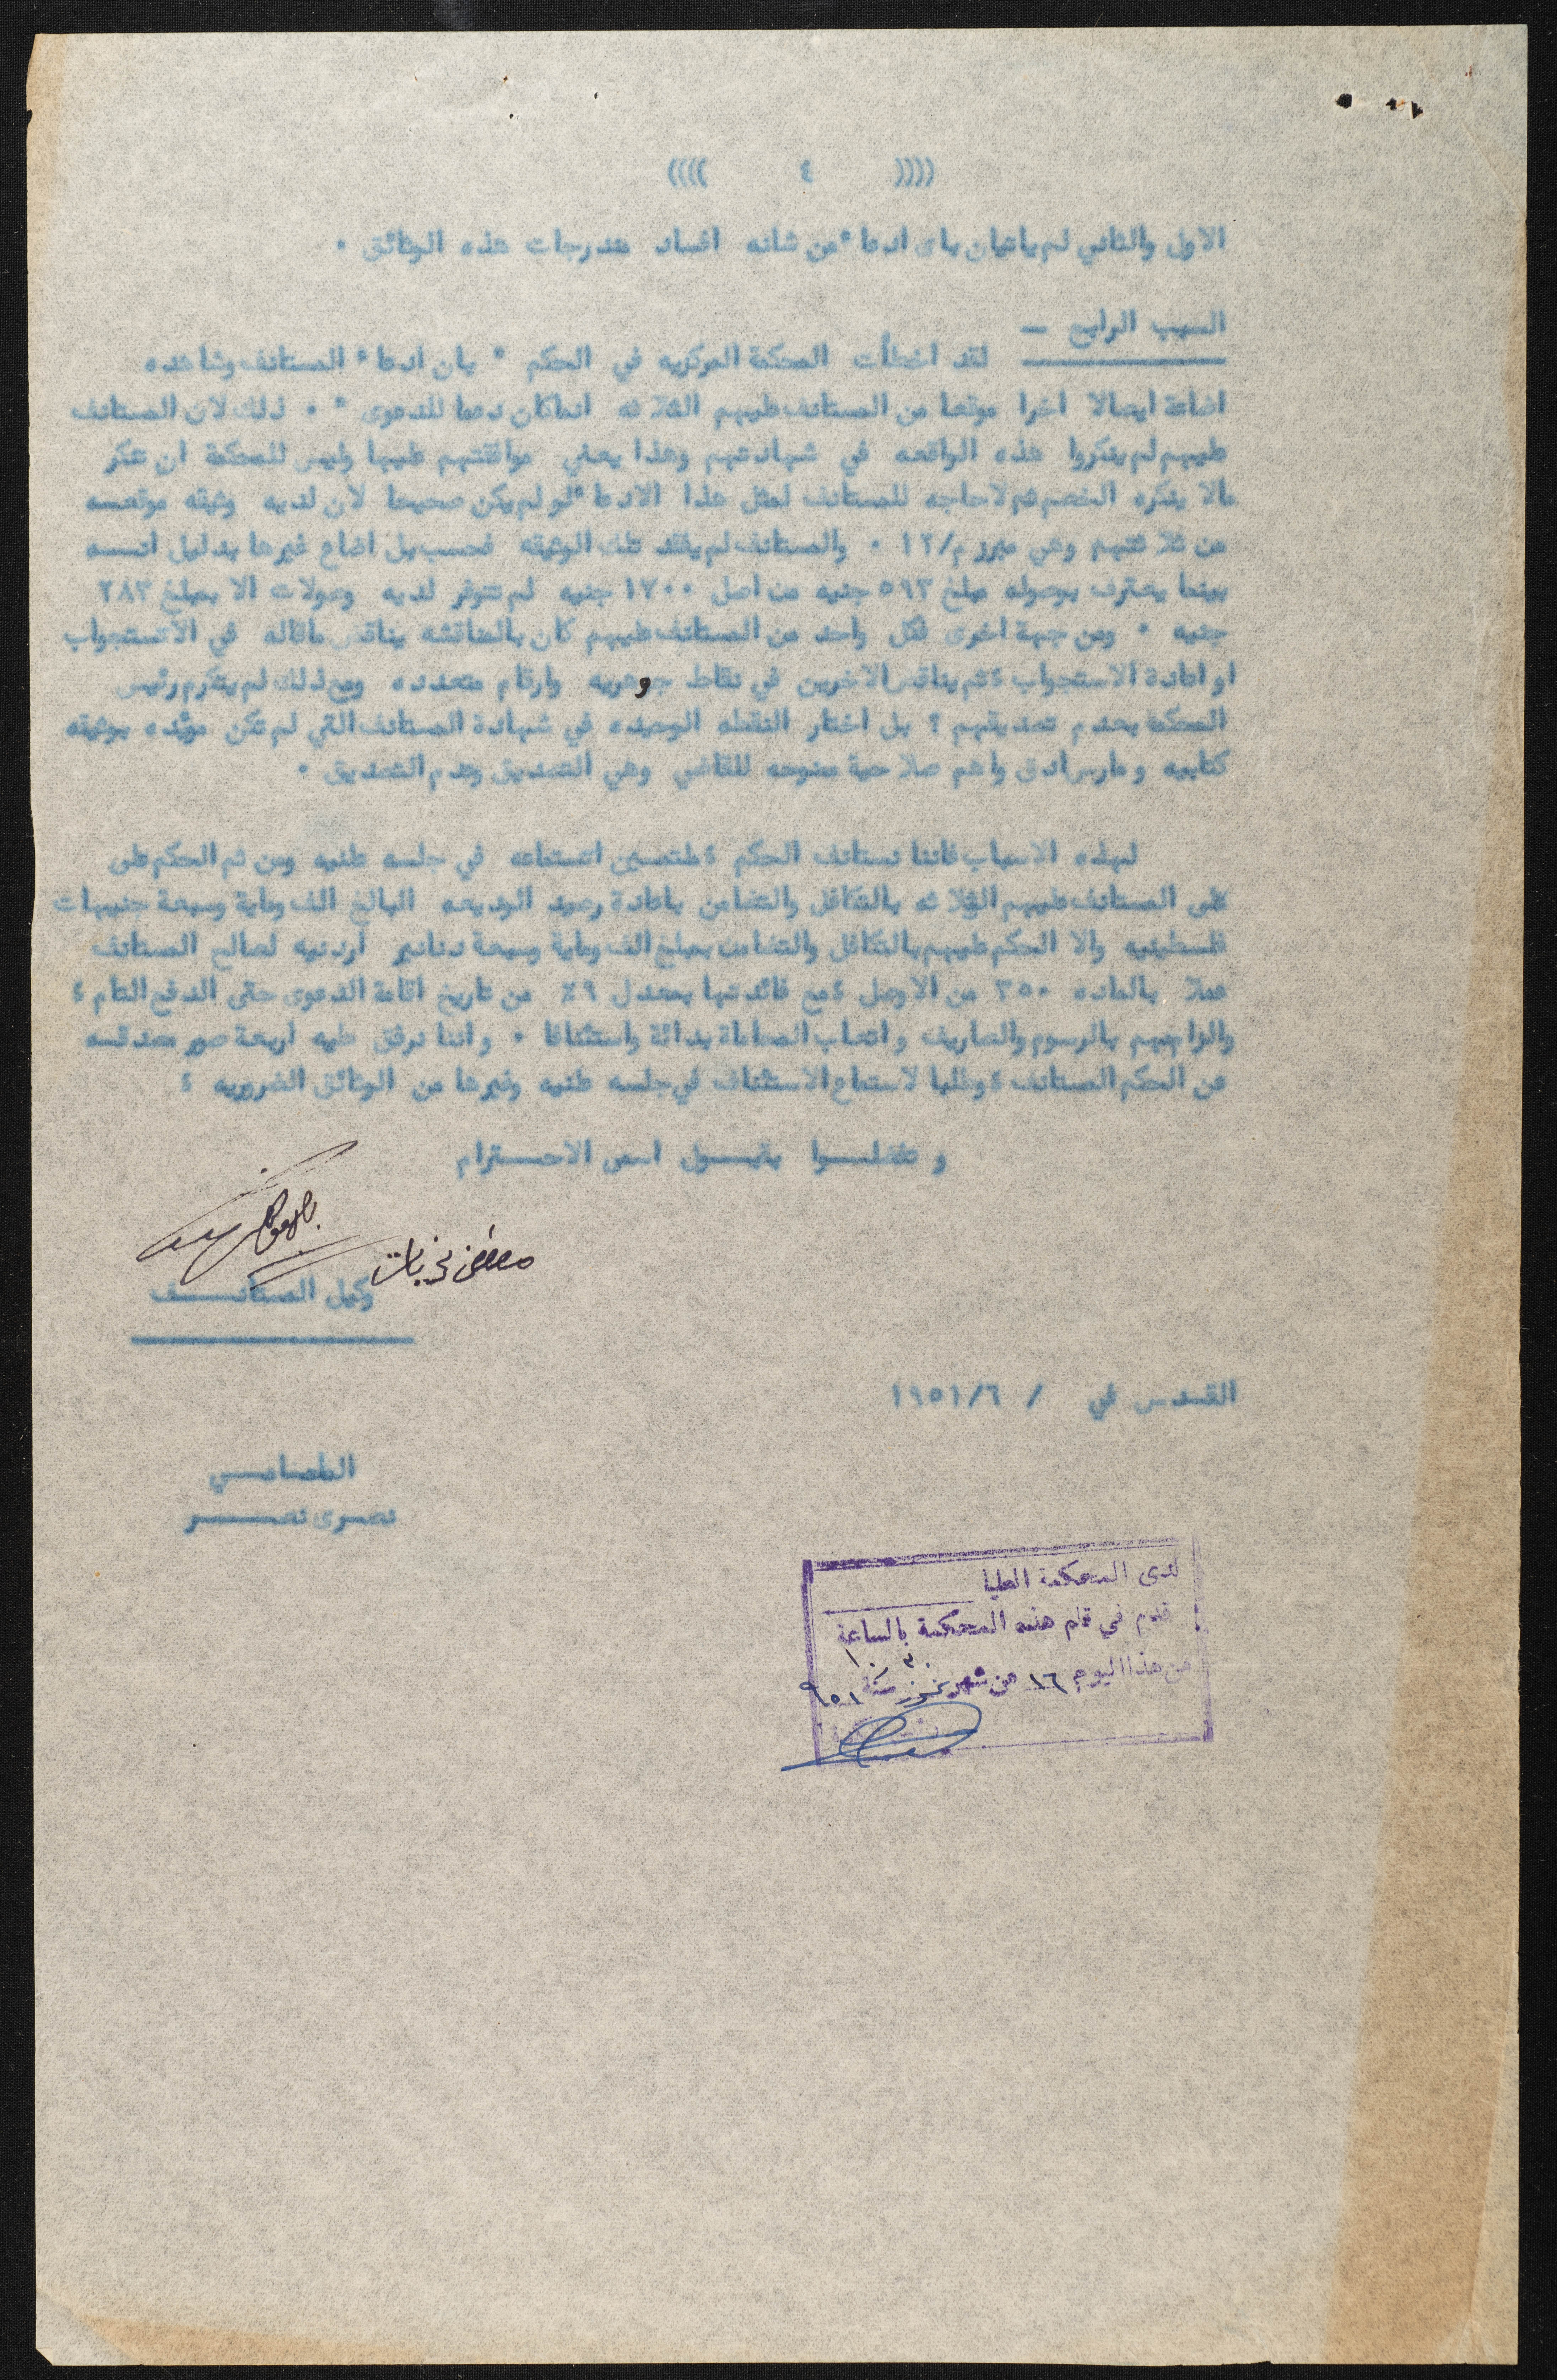 (((( ٤ ))))
الاول والثاني لم ياتيان باى ادعا ٴ من شانه افساد مندرجات هذه الوثائق ٠
السبب الرابع —
لقد اخطأت المحكمة المركزيه في الحكم " بان ادعا ٴ المستانف وشاهده
اضاعة ايصالا اخرا موقعا من المستانف عليهم الثلاثه انما كان دعما للدعوى " ٠ ذلك لان المستانف
عليهم لم ينكروا هذه الواقعه في شهادتهم وهذا يعني موافقتهم عليها وليس للمحكمة ان تنكر
مالا ينكره الخصم ثم لاحاجه للمستانف لمثل هذا الادعا ٴ لو لم يكن صحيحا لان لديه وثيقه موقعـه
من ثلاثتهم وهي مبرز م/١٢ ٠ والمستانف لم يفقد تلك الوثيقه فحسب بل اضاع غيرها بدليل انـــه
بينما يعترف بوصوله مبلغ ٥٩٣ جنيه من اصل ١٧٠٠ جنيه لم تتوفر لديه وصولات الا بمبلغ ٢٨٣
جنيه ٠ ومن جهة اخرى فكل واحد من المستانف عليهم كان بالمناقشه يناقض ماقاله في الاستجواب
او اعادة الاستجواب ٤ ثم يناقض الاخرين في نقاط جوهريه وارقام متعدده ومع ذلك لم يتكرم رئيس
المحكمة بعدم تصديقهم ؟ بل اختار النقطه الوحيده في شهادة المستانف التي لم تكن مؤيده بوثيقه
كتابيه ومارس ادق واهم صلاحية ممنوحه للقاضي وهي التصديق وعدم التصديق ٠
لهذه الاسباب فاننا نستانف الحكم ٤ ملتمسين استماعه في جلسه علنيه ومن ثم الحكم على
على المستانف عليهم الثلاثه بالتكافل والتضامن باعادة رصيد الوديعه البالغ الف وماية وسبعة جنيهات
فلسطينيه والا الحكم عليهم بالتكافل والتضامن بمبلغ الف وماية وسبعة دنانير أردنيه لصالح المستانف
عملا بالماده ٢٥٠ من الاصول ٤ مع فائدتها بمعدل ٩٪ من تاريخ اقامة الدعوى حتى الدفع التام ٤
والزامهم بالرسوم والمصاريف واتعاب المحاماة بدائة واستئنافا ٠ واننا نرفق طيه اربعة صور مصدقـه
عن الحكم المستانف ٤ وطلبا لاستماع الاستئناف في جلسه علنيه وغيرها من الوثائق الضروريه ٤
وتفضلـــوا بقبـــول اسمى الاحـــترام
وكيل المستانـــف
القـدس في / ١٩٥١/٦
المحـامـــي
نصـرى نصـــر
لدى المحكمة العليا
قدم في قلم هذه المحكمة بالساعة
١٠ ٣٠
من هذا اليوم ١٦ من شهر تموز سنة ٩٥١